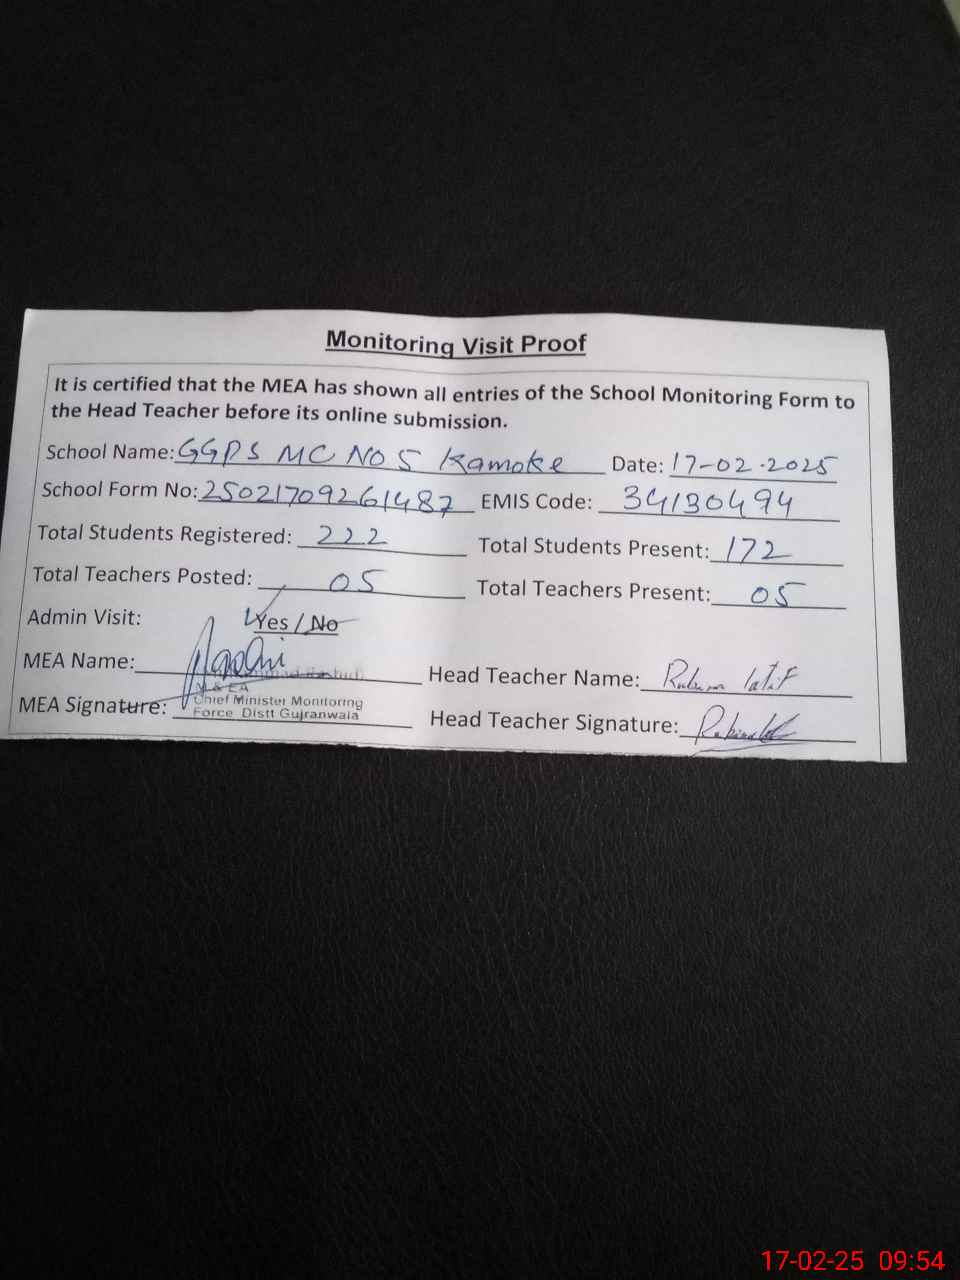 Monitoring Visit Proof
It is certified that the MEA has shown all entries of the School Monitoring Form to
the Head Teacher before its online submission.
School Name: GGPS MC NO 5 Kamoke Date: 17-02-2025
School Form No: 25021709261487 EMIS Code: 34130494
Total Students Registered: 222 Total Students Present: 172
Total Teachers Posted: 05 Total Teachers Present: 05
Admin Visit: Yes / No
MEA Name: Head Teacher Name: Rubina latif
M & EA
MEA Signature: Chief Minister Monitoring
Force Distt Gujranwala
Head Teacher Signature:
17-02-25 09:54